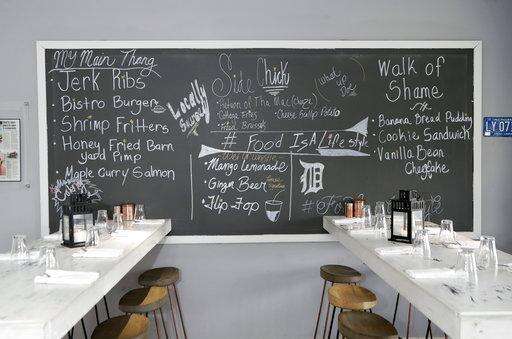 My Main Thang
Jerk Ribs
Bistro Burger
Shrimp Fritters
Honey Fried Barn
yard Pimp
Maple Curry Salmon
Locally
Side Chick
Return of Tha Mac (Cheeze)
Collard Fries
Fried Brussels
(What To Do)
# Food Is A Lifestyle
Mango Lemonade
Ginger Beer
Flip Flop
D
Walk of
Shame
Banana Bread Pudding
Cookie Sandwich
Vanilla Bean
Cheesecake
LY 07